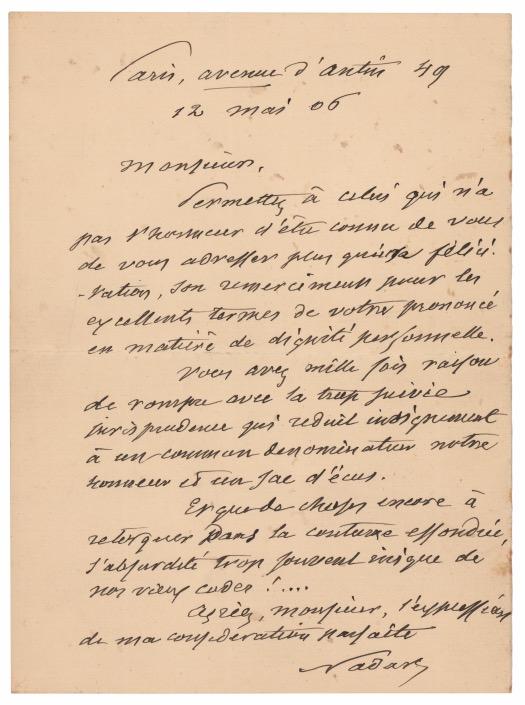 Paris, avenue d'Antin 49
12 mai 06
Monsieur,
Permettez à celui qui n'a
pas l'honneur d'être connu de vous
de vous adresser plus que sa félici-
-tation, son remerciement pour les
excellents termes de votre prononcé
en matière de dignité personnelle.
Vous avez mille fois raison
de rompre avec la trop suivie
jurisprudence qui réduit indignement
à un commun denominateur notre
honneur et un sac d'écus.
Et que de choses encore à
retorquer Dans la coutume effondrée,
l'absurdité trop souvent inique de
nos vieux codes !....
Agréez, monsieur, l'expression
de ma considération parfaite
Nadar